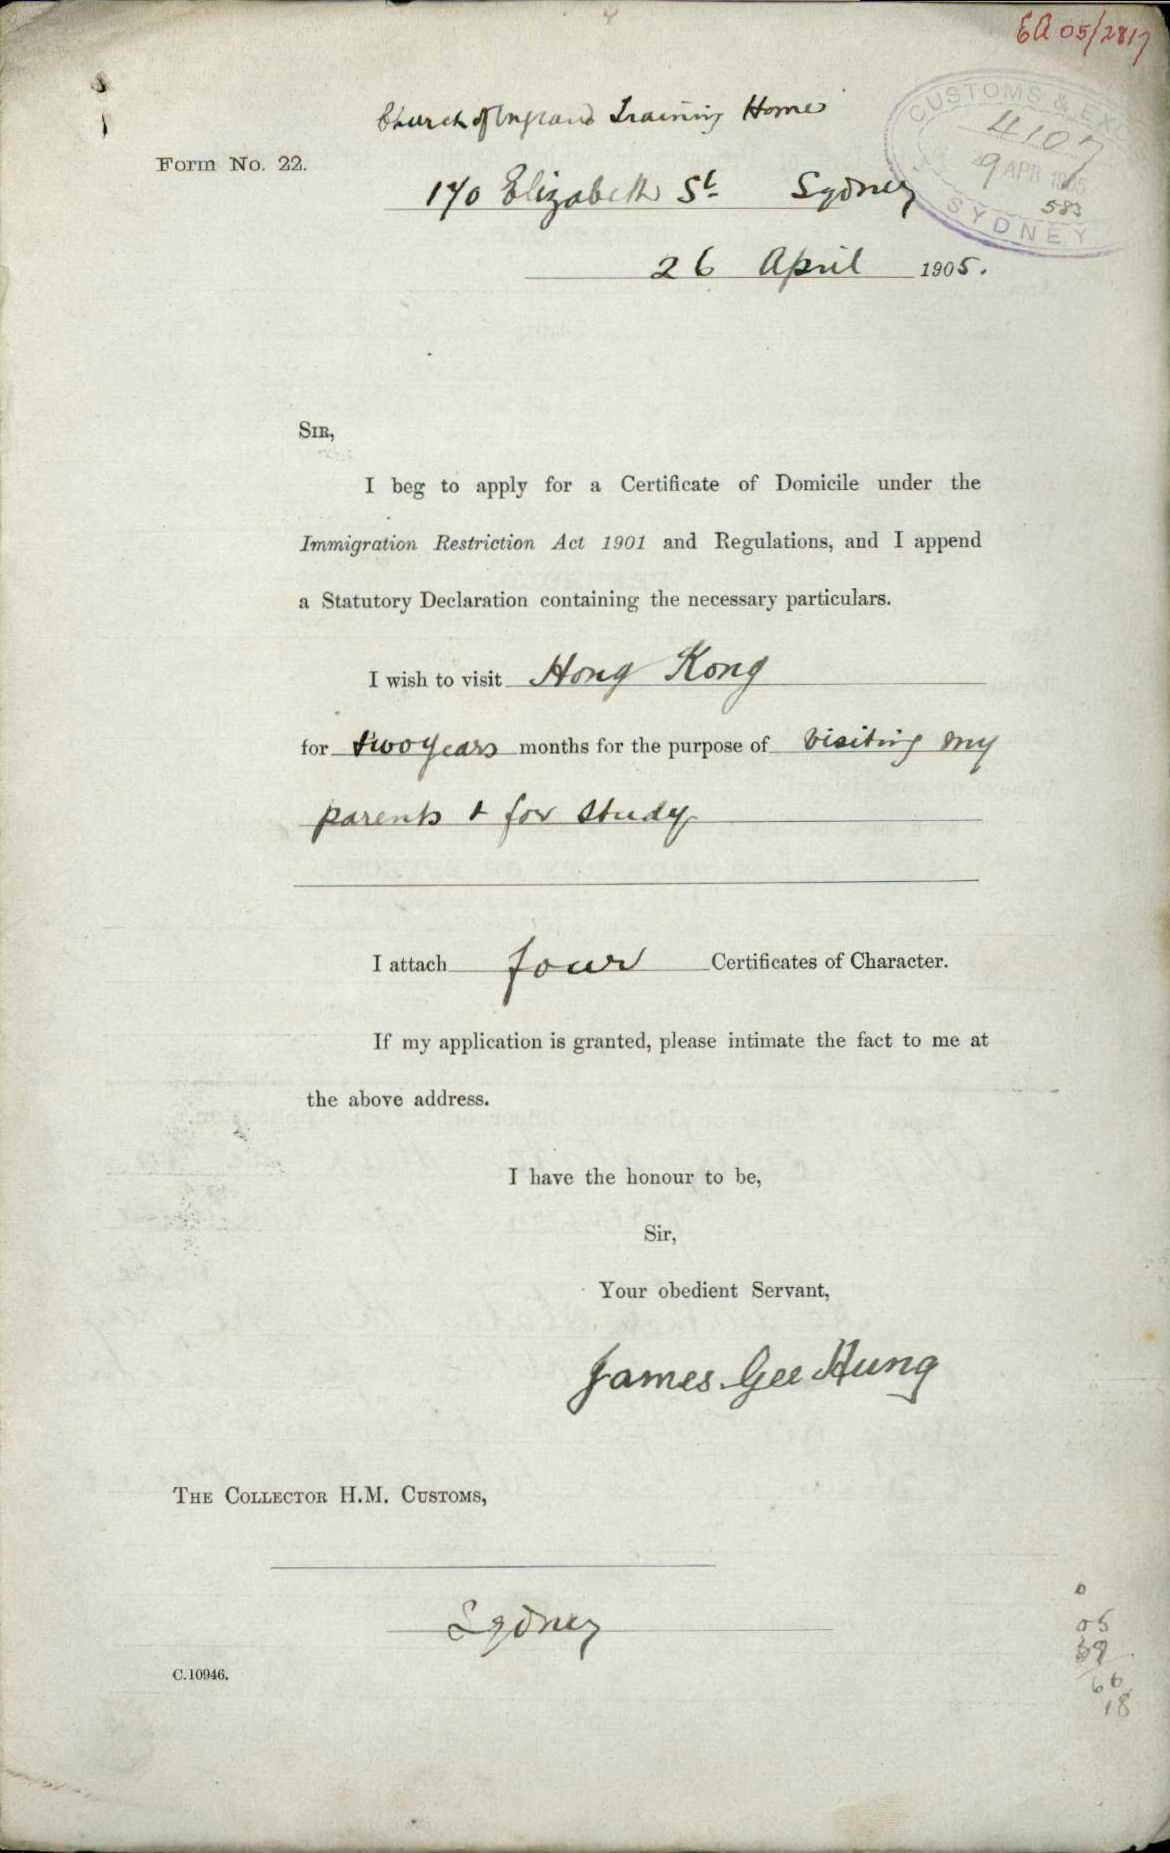 EA 05/2817
Church of England Training Home
CUSTOMS & EXC
4107
9 APR 1905
583
SYDNEY
Form No. 22.
170 Elizabeth St. Sydney
26 April 1905.
SIR,
I beg to apply for a Certificate of Domicile under the
Immigration Restriction Act 1901 and Regulations, and I append
a Statutory Declaration containing the necessary particulars.
I wish to visit Hong Kong
for two years months for the purpose of visiting my
parents & for study
I attach four Certificates of Character.
If my application is granted, please intimate the fact to me at
the above address.
I have the honour to be,
Sir,
Your obedient Servant,
James Gee Hung
THE COLLECTOR H.M. CUSTOMS,
Sydney
C.10946.
05
66
18